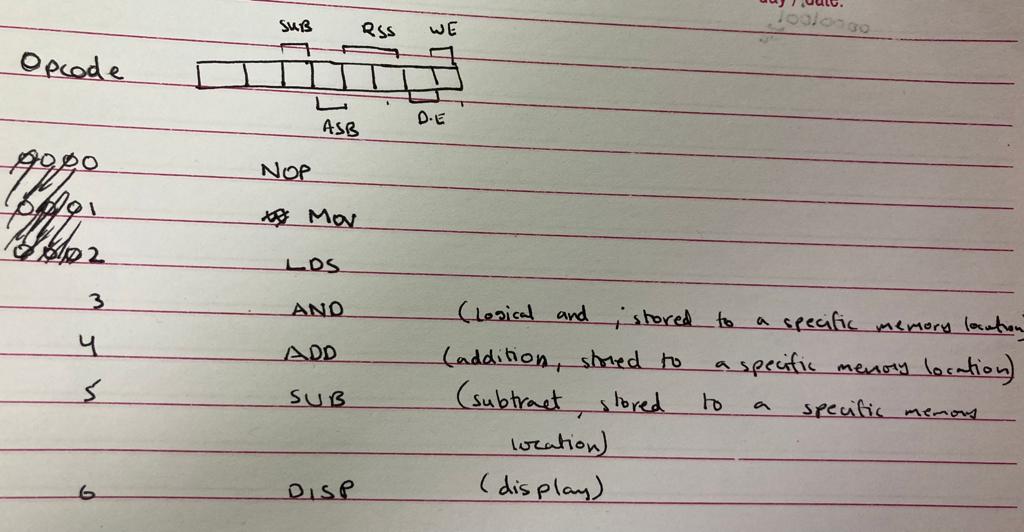 day / date:
10010000
SUB RSS WE
Opcode
ASB D.E
0000 NOP
0001 MOV
0002 LDS
3 AND (Logical and ; stored to a specific memory location)
4 ADD (addition, stored to a specific memory location)
5 SUB (subtract, stored to a specific memory
location)
6 DISP (display)